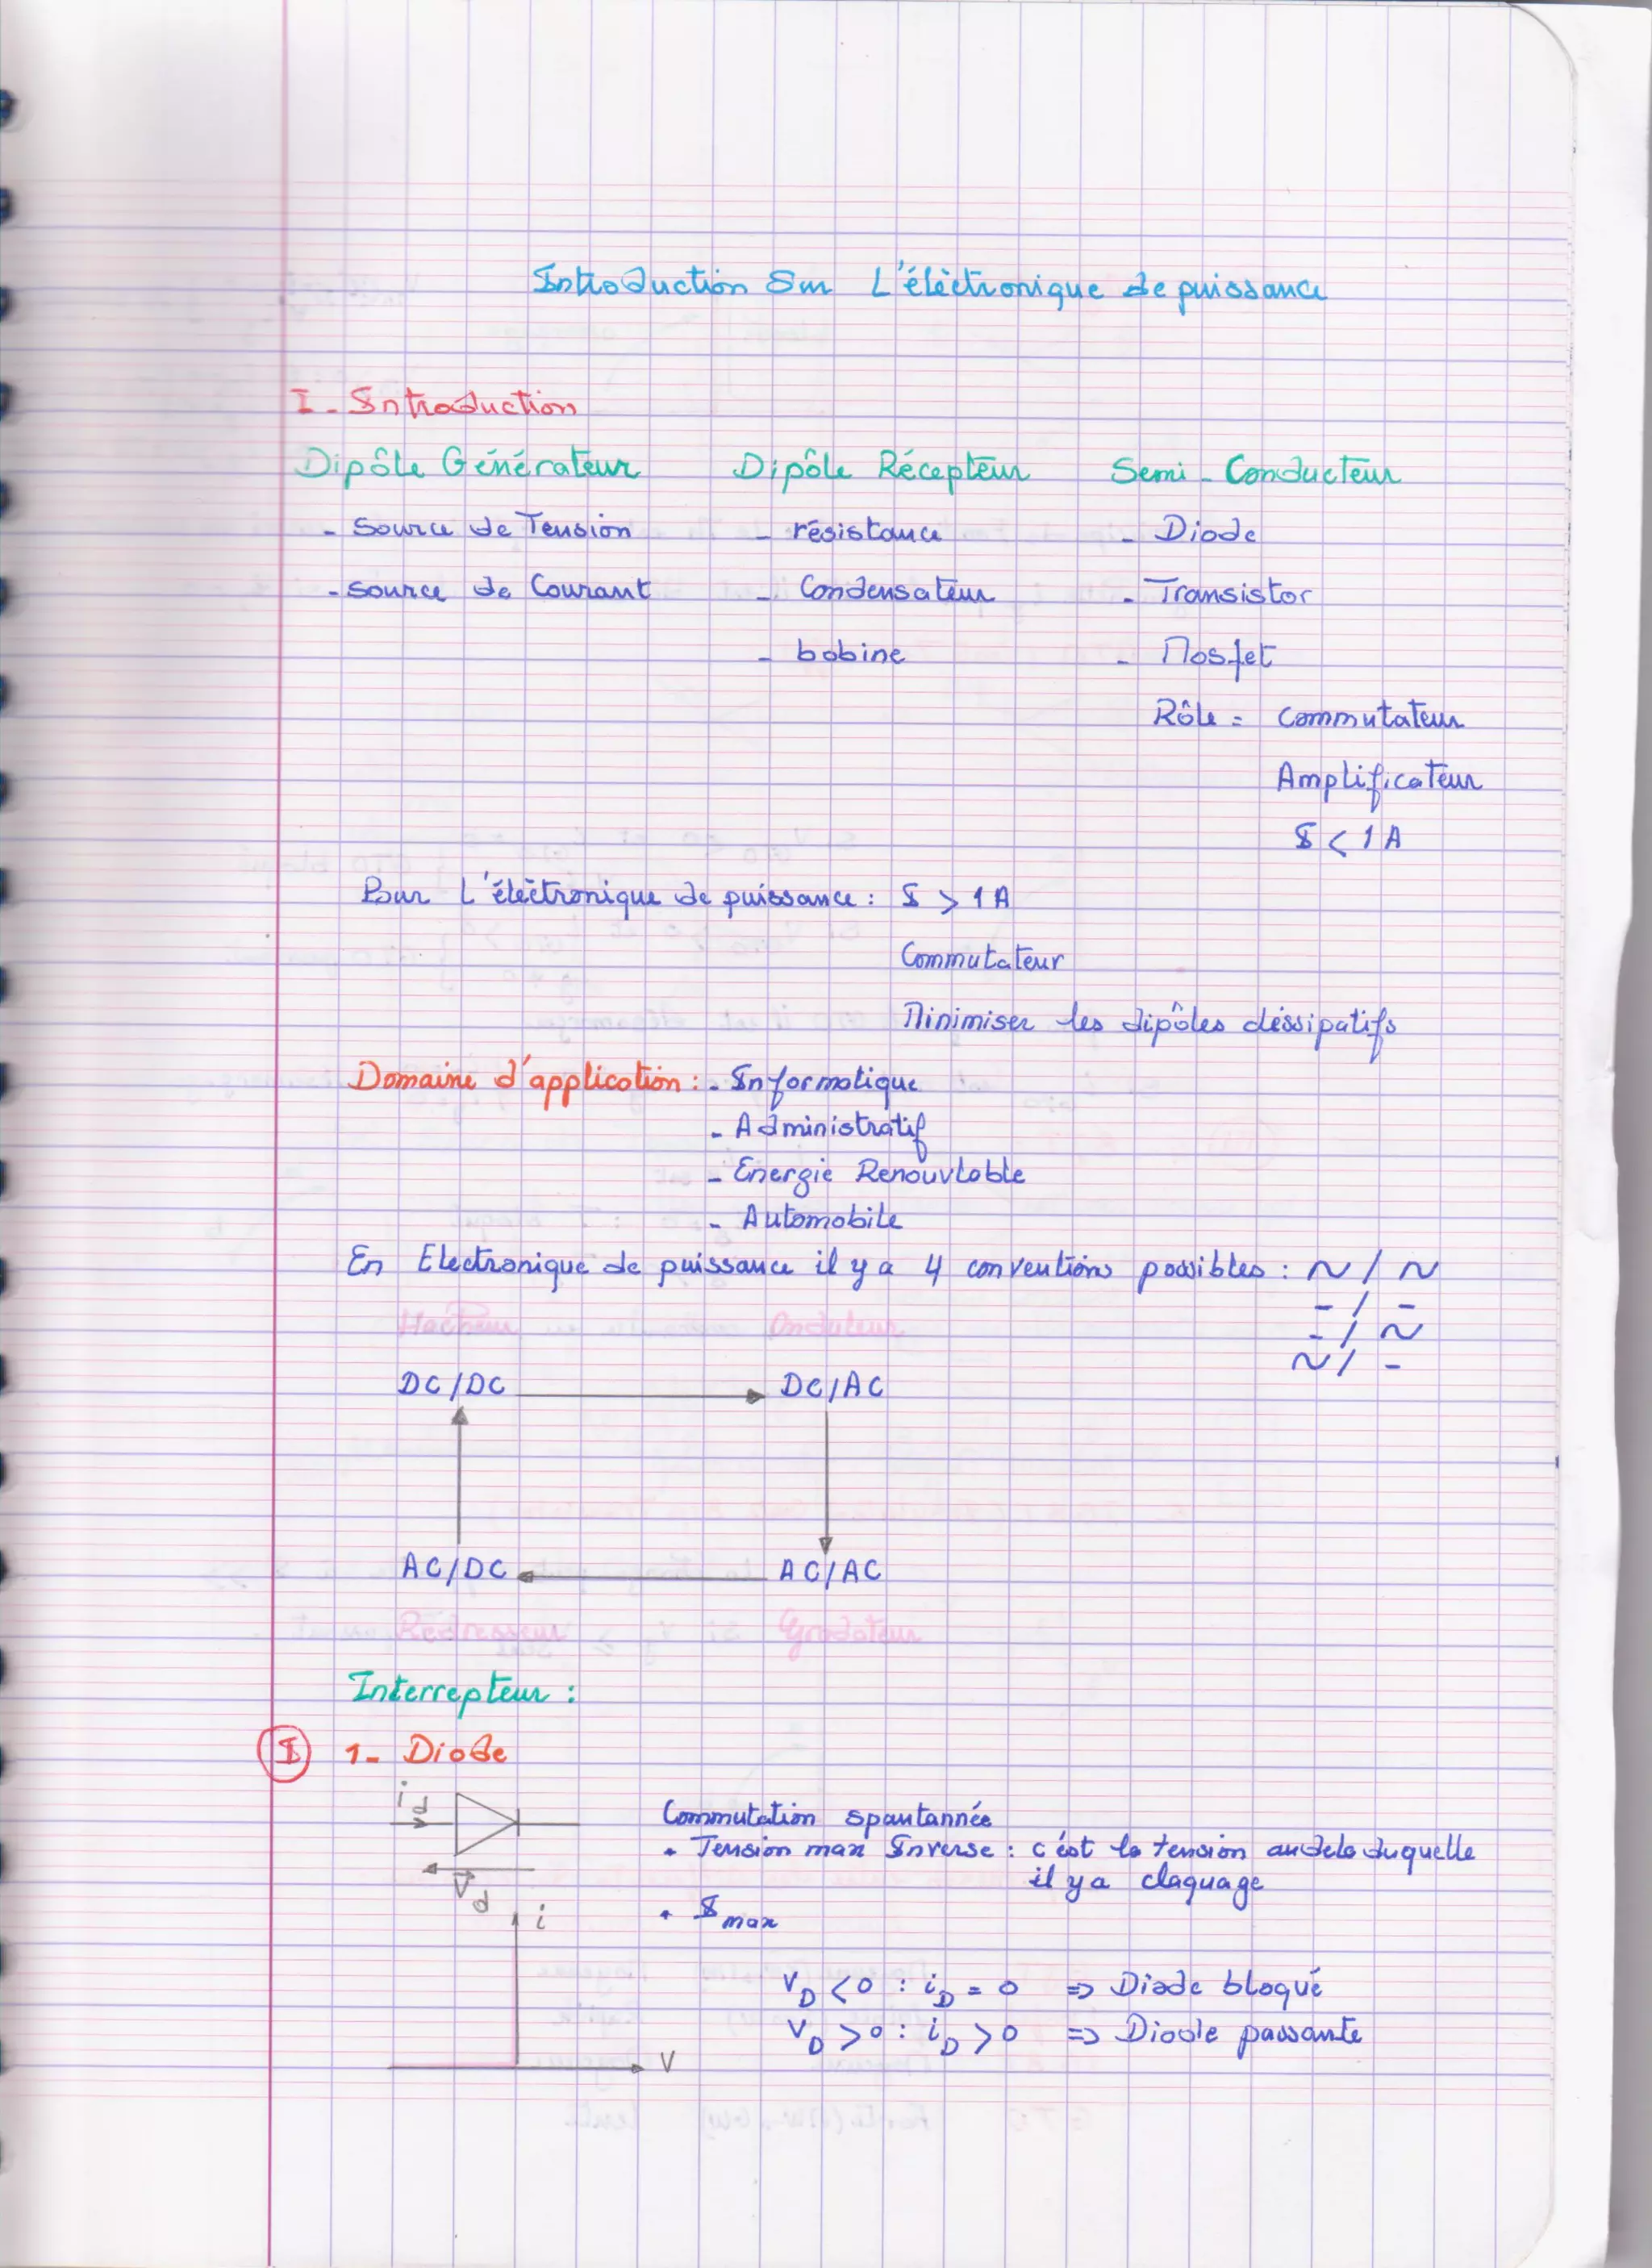 Introduction Sur L'éléctronique de puissance
I - Introduction
Dipôle Générateur Dipôle Récepteur Semi-Conducteur
- Source de Tension - résistance - Diode
- source de Courant - Condensateur - Transistor
- bobine - Mosfet
Rôle = Commutateur
Amplificateur
I < 1 A
Pour L'éléctronique de puissance : I > 1 A
Commutateur
Minimiser les dipôles déssipatifs
Domaine d'application : - Informatique
- Administratif
- Energie Renouvlable
- Automobile
En Electronique de puissance il y a 4 conventions possibles : ~ / ~
- / -
- / ~
~ / -
Hacheur Onduleur
DC/DC DC/AC
AC/DC AC/AC
Redresseur Gradateur
Interrepteur :
I 1- Diode
i d
Commutation spantannée
• Tension max Inverse : c'est la tension audela duquelle
il y a claquage
V d
i
• I max
V D < 0 : i D = 0 => Diade bloqué
V D > 0 : i D > 0 => Diode passante
V